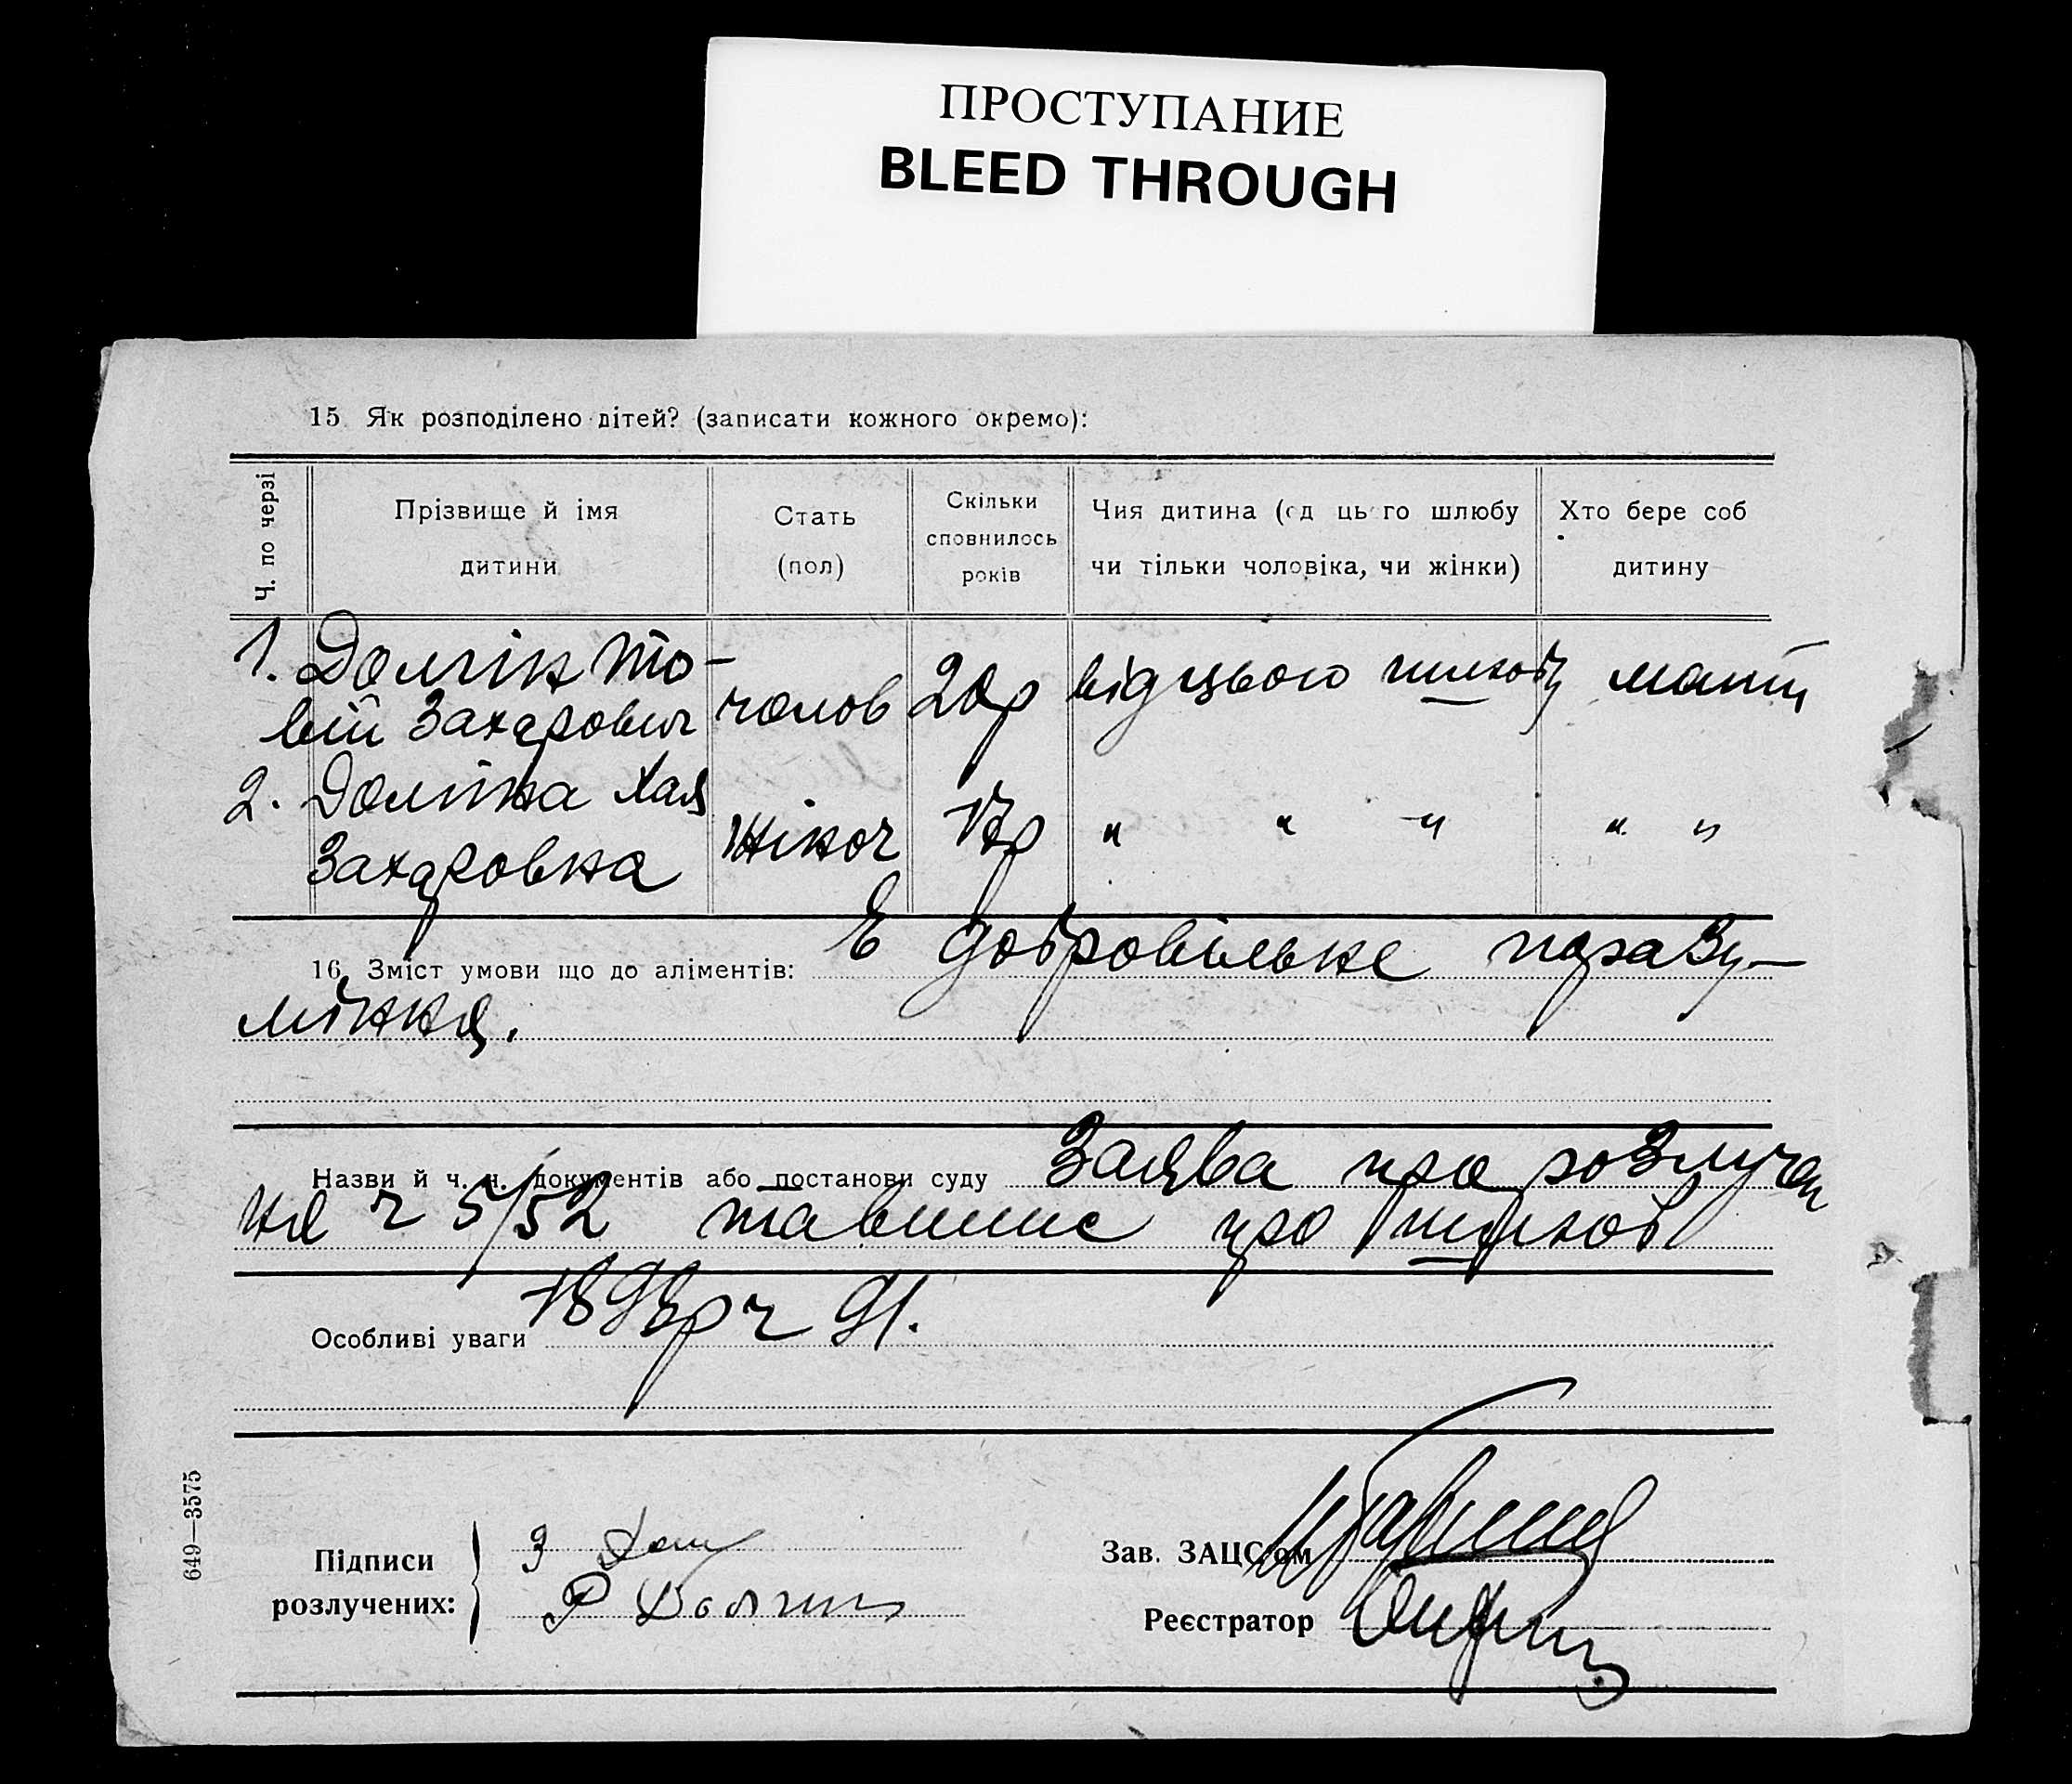 ПРОСТУПАНИЕ
BLEED THROUGH
15. Як розподілено дітей? (записати кожного окремо):
Ч. по черзі
Прізвище й імя дитини
Стать (пол)
Скільки сповнилось років
Чия дитина (од цього шлюбу чи тільки чоловіка, чи жінки)
Хто бере соб дитину
1. Долгін То-
вій Захарович чолов 20р від цього шлюбу мати
2. Долгіна Хая
Захаровна жіноч 17р " " " " "
16. Зміст умови що до аліментів: Є добровільне поразу-
міння.
Назви й ч. ч. документів або постанови суду Заява про розлучен
ня ч 5/52 та випис про шлюб
1898р ч 91.
Особливі уваги
649—3575
Підписи розлучених:
З
Р Долгин
Зав. ЗАЦС'ом
Реєстратор